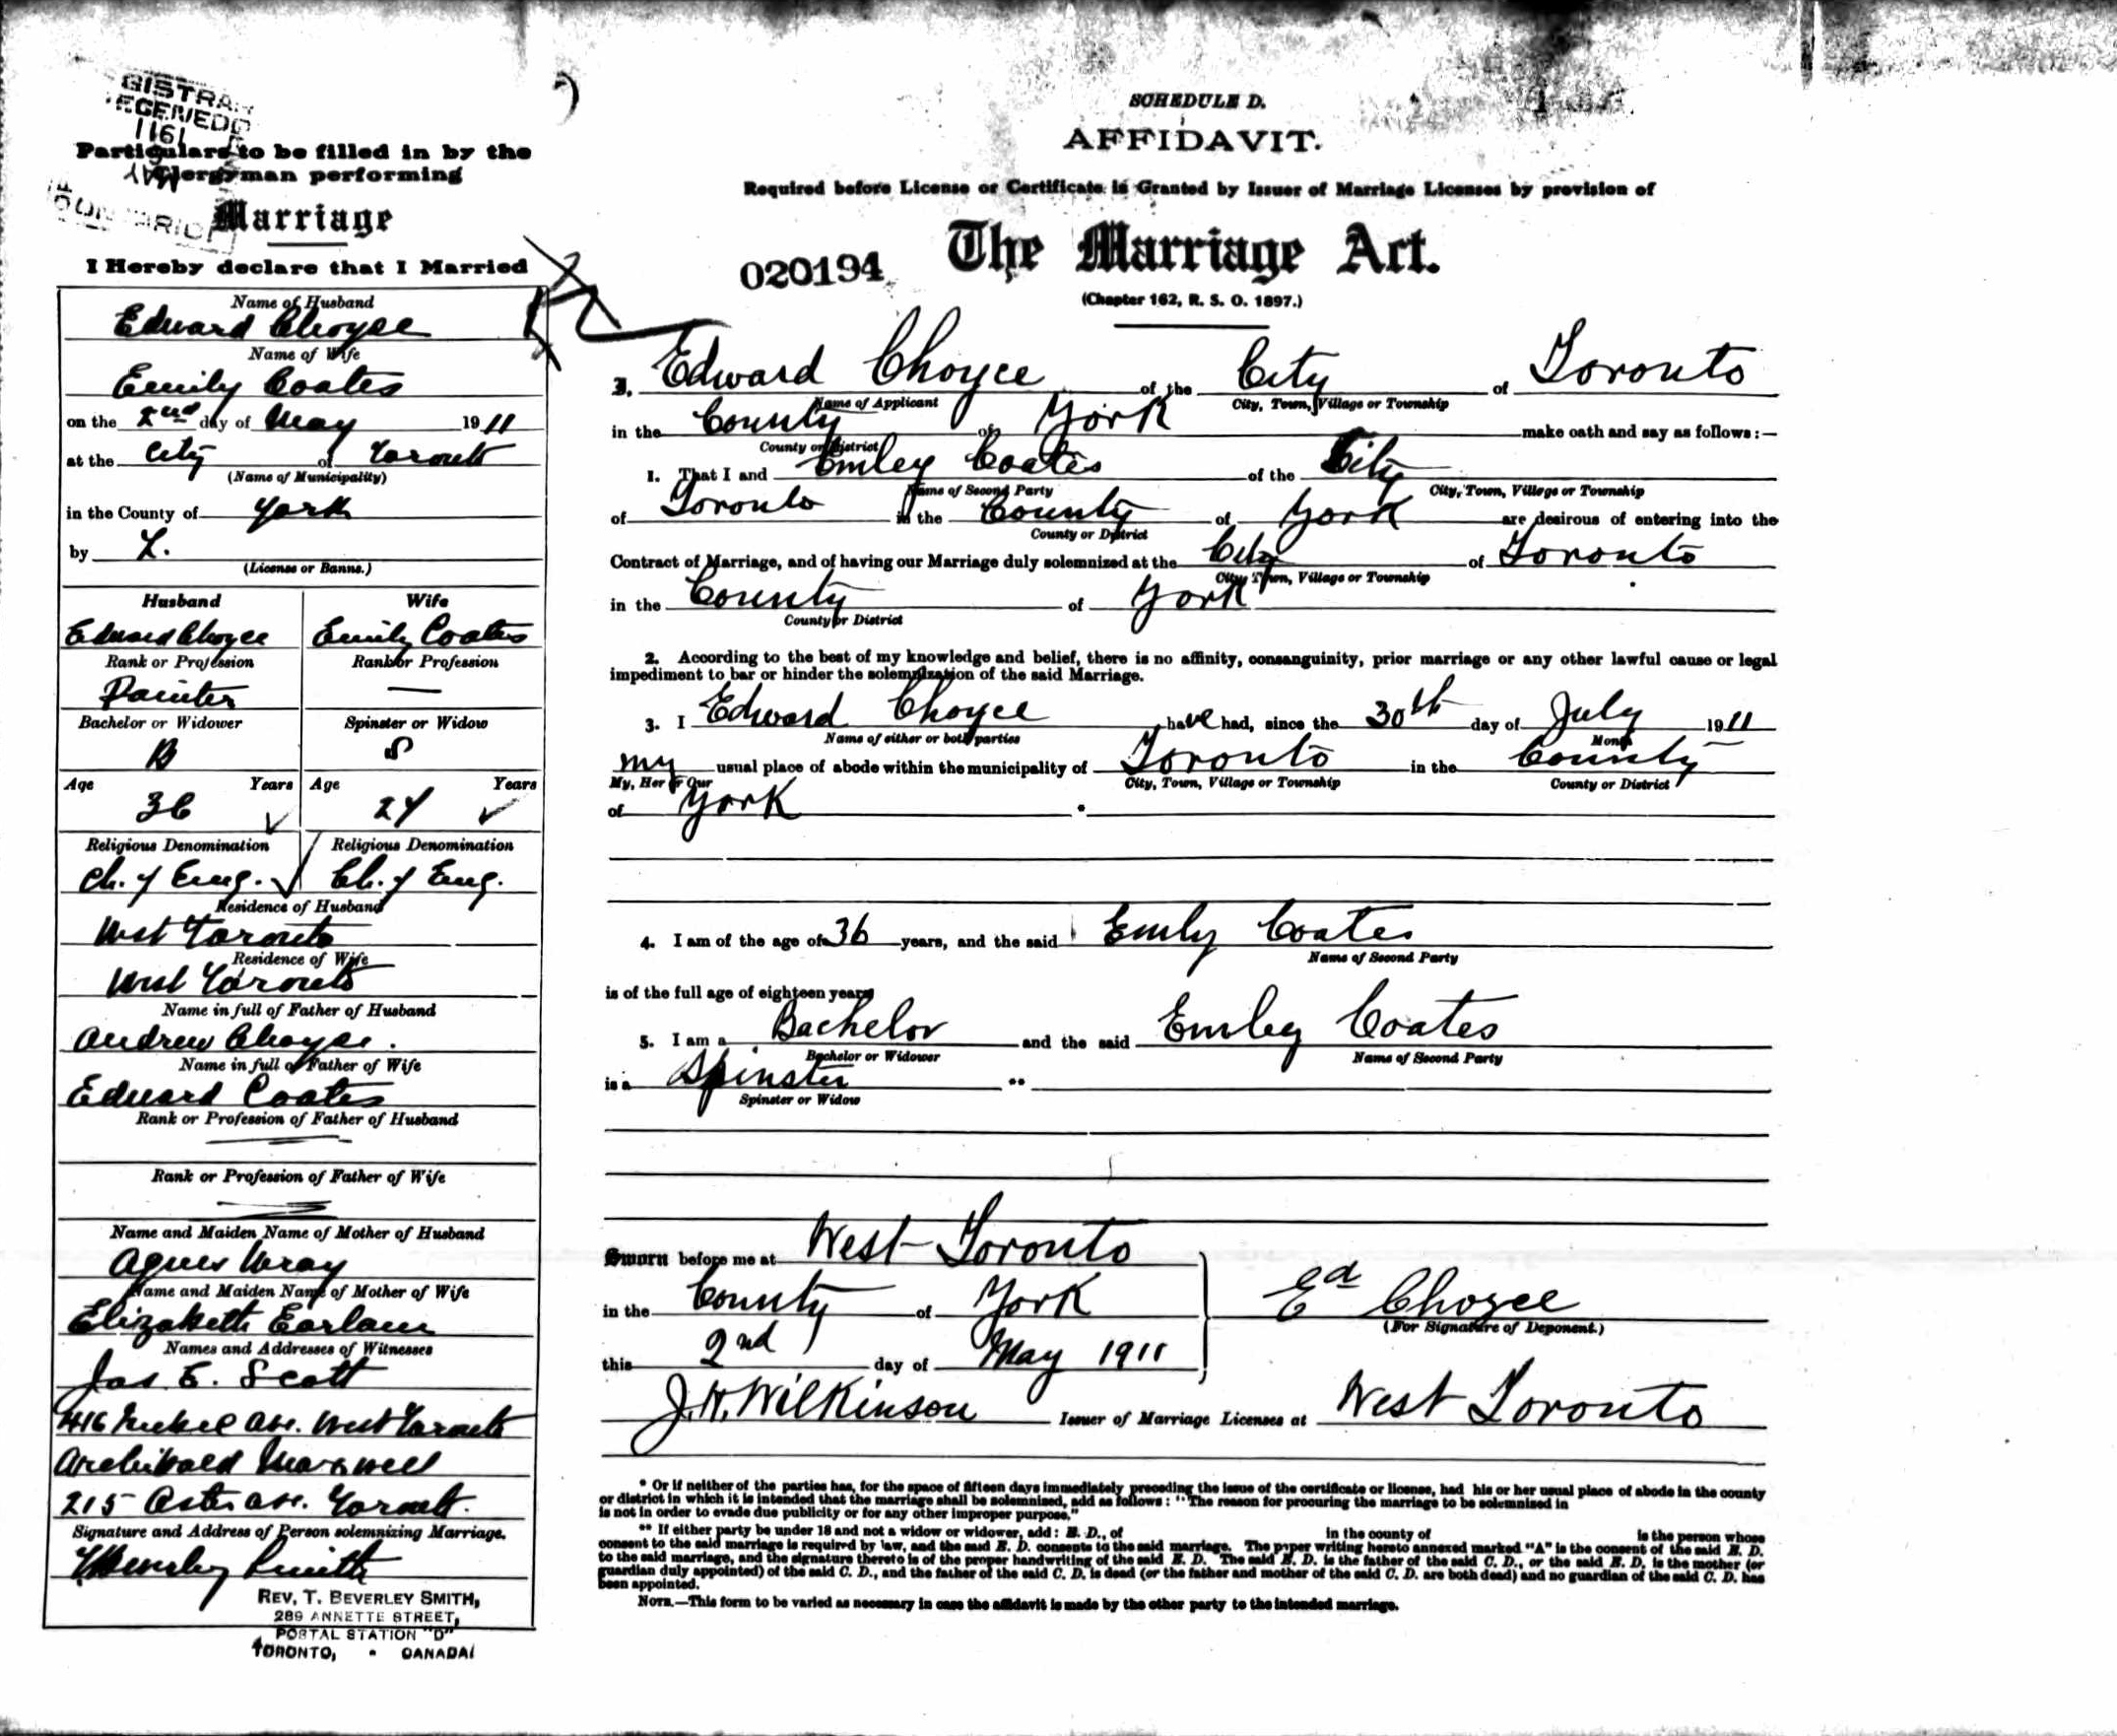 GISTRA
ECEIVED
1161
Particulars to be filled in by the
Clergyman performing
Marriage
I Hereby declare that I Married
Name of Husband
Edward Choyce
Name of Wife
Emily Coates
on the 2nd day of May 1911
at the City of Toronto
(Name of Municipality)
in the County of York
by L.
(License or Banns.)
Husband Wife
Edward Choyce Emily Coates
Rank or Profession Rank or Profession
Painter —
Bachelor or Widower Spinster or Widow
B S
Age Years Age Years
36 24
Religious Denomination Religious Denomination
Ch. of Eng. Ch. of Eng.
Residence of Husband
West Toronto
Residence of Wife
West Toronto
Name in full of Father of Husband
Andrew Choyce.
Name in full of Father of Wife
Edward Coates
Rank or Profession of Father of Husband
Rank or Profession of Father of Wife
Name and Maiden Name of Mother of Husband
Agnes Wray
Name and Maiden Name of Mother of Wife
Elizabeth Earlam
Names and Addresses of Witnesses
Jas. E. Scott
416 Ave. West Toronto
Archibald Maxwell
215 Ave. Toronto.
Signature and Address of Person solemnizing Marriage.
T Beverley Smith
REV. T. BEVERLEY SMITH,
289 ANNETTE STREET,
POSTAL STATION "D"
TORONTO, - CANADA
SCHEDULE D.
AFFIDAVIT.
Required before License or Certificate is Granted by Issuer of Marriage Licenses by provision of
020194 The Marriage Act.
(Chapter 162, R. S. O. 1897.)
I, Edward Choyce of the City of Toronto
Name of Applicant City, Town, Village or Township
in the County of York make oath and say as follows:—
County or District
1. That I and Emley Coates of the City
Name of Second Party City, Town, Village or Township
of Toronto in the County of York are desirous of entering into the
County or District
Contract of Marriage, and of having our Marriage duly solemnized at the City of Toronto
City, Town, Village or Township
in the County of York
County or District
2. According to the best of my knowledge and belief, there is no affinity, consanguinity, prior marriage or any other lawful cause or legal
impediment to bar or hinder the solemnization of the said Marriage.
3. I Edward Choyce have had, since the 30th day of July 1911
Name of either or both parties Month
my usual place of abode within the municipality of Toronto in the County
My, Her or Our City, Town, Village or Township County or District
of York
4. I am of the age of 36 years, and the said Emly Coates
Name of Second Party
is of the full age of eighteen years
5. I am a Bachelor and the said Emley Coates
Bachelor or Widower Name of Second Party
is a Spinster **
Spinster or Widow
Sworn before me at West Toronto
in the County of York
this 2nd day of May 1911
Ed Choyce
(For Signature of Deponent.)
J. H. Wilkinson Issuer of Marriage Licenses at West Toronto
* Or if neither of the parties has, for the space of fifteen days immediately preceding the issue of the certificate or license, had his or her usual place of abode in the county
or district in which it is intended that the marriage shall be solemnized, add as follows: "The reason for procuring the marriage to be solemnized in
is not in order to evade due publicity or for any other improper purpose."
** If either party be under 18 and not a widow or widower, add: E. D., of in the county of is the person whose
consent to the said marriage is required by law, and the said E. D. consents to the said marriage. The paper writing hereto annexed marked "A" is the consent of the said E. D.
to the said marriage, and the signature thereto is of the proper handwriting of the said E. D. The said E. D. is the father of the said C. D., or the said E. D. is the mother (or
guardian duly appointed) of the said C. D., and the father of the said C. D. is dead (or the father and mother of the said C. D. are both dead) and no guardian of the said C. D. has
been appointed.
NOTE.—This form to be varied as necessary in case the affidavit is made by the other party to the intended marriage.